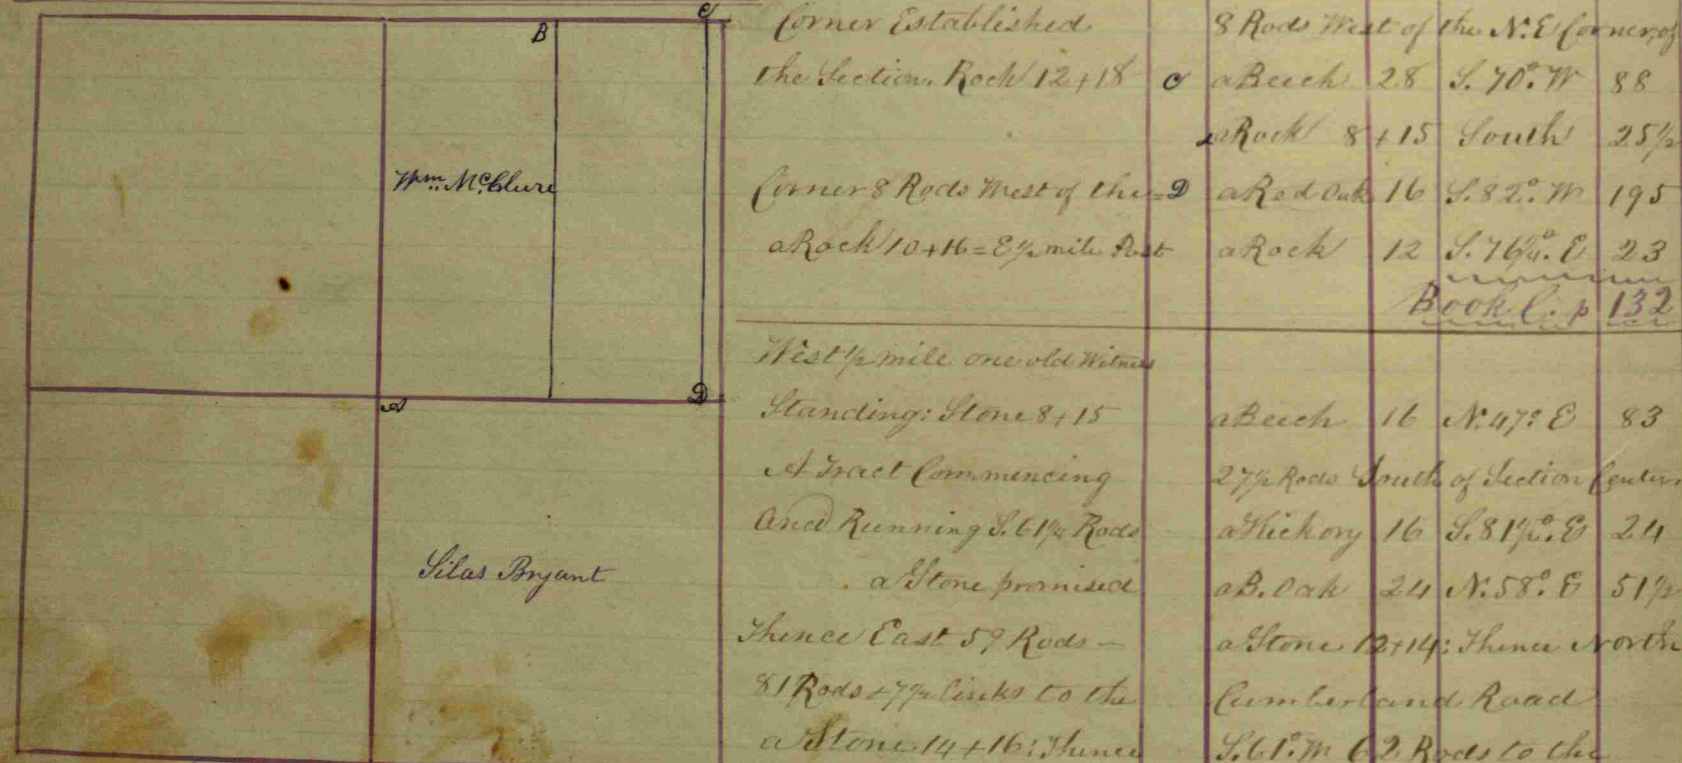 C
B
Wm. McClure
A
D
Silas Bryant
Corner Established 8 Rods West of the N.E Corner of
the Section. Rock 12+18 C a Beech 28 S. 70° W 88
a Rock 8+15 South 25½
Corner 8 Rods West of the = D a Red Oak 16 S. 82° W 195
a Rock 10+16 = E ½ mile Post a Rock 12 S. 76¼° E 23
Book C. p 132
West ½ mile one old Witness
Standing: Stone 8+15 a Beech 16 N. 47° E 83
A Tract Commencing 27½ Rods South of Section Center
And Running S. 61¼ Rods a Hickory 16 S. 81½° E 24
a Stone promised a B. Oak 24 N. 58° E 51½
Thence East 59 Rods — a Stone 12+14: Thence North
81 Rods + 7½ links to the Cumberland Road
a Stone 14+16: Thence S. 61° W 62 Rods to the